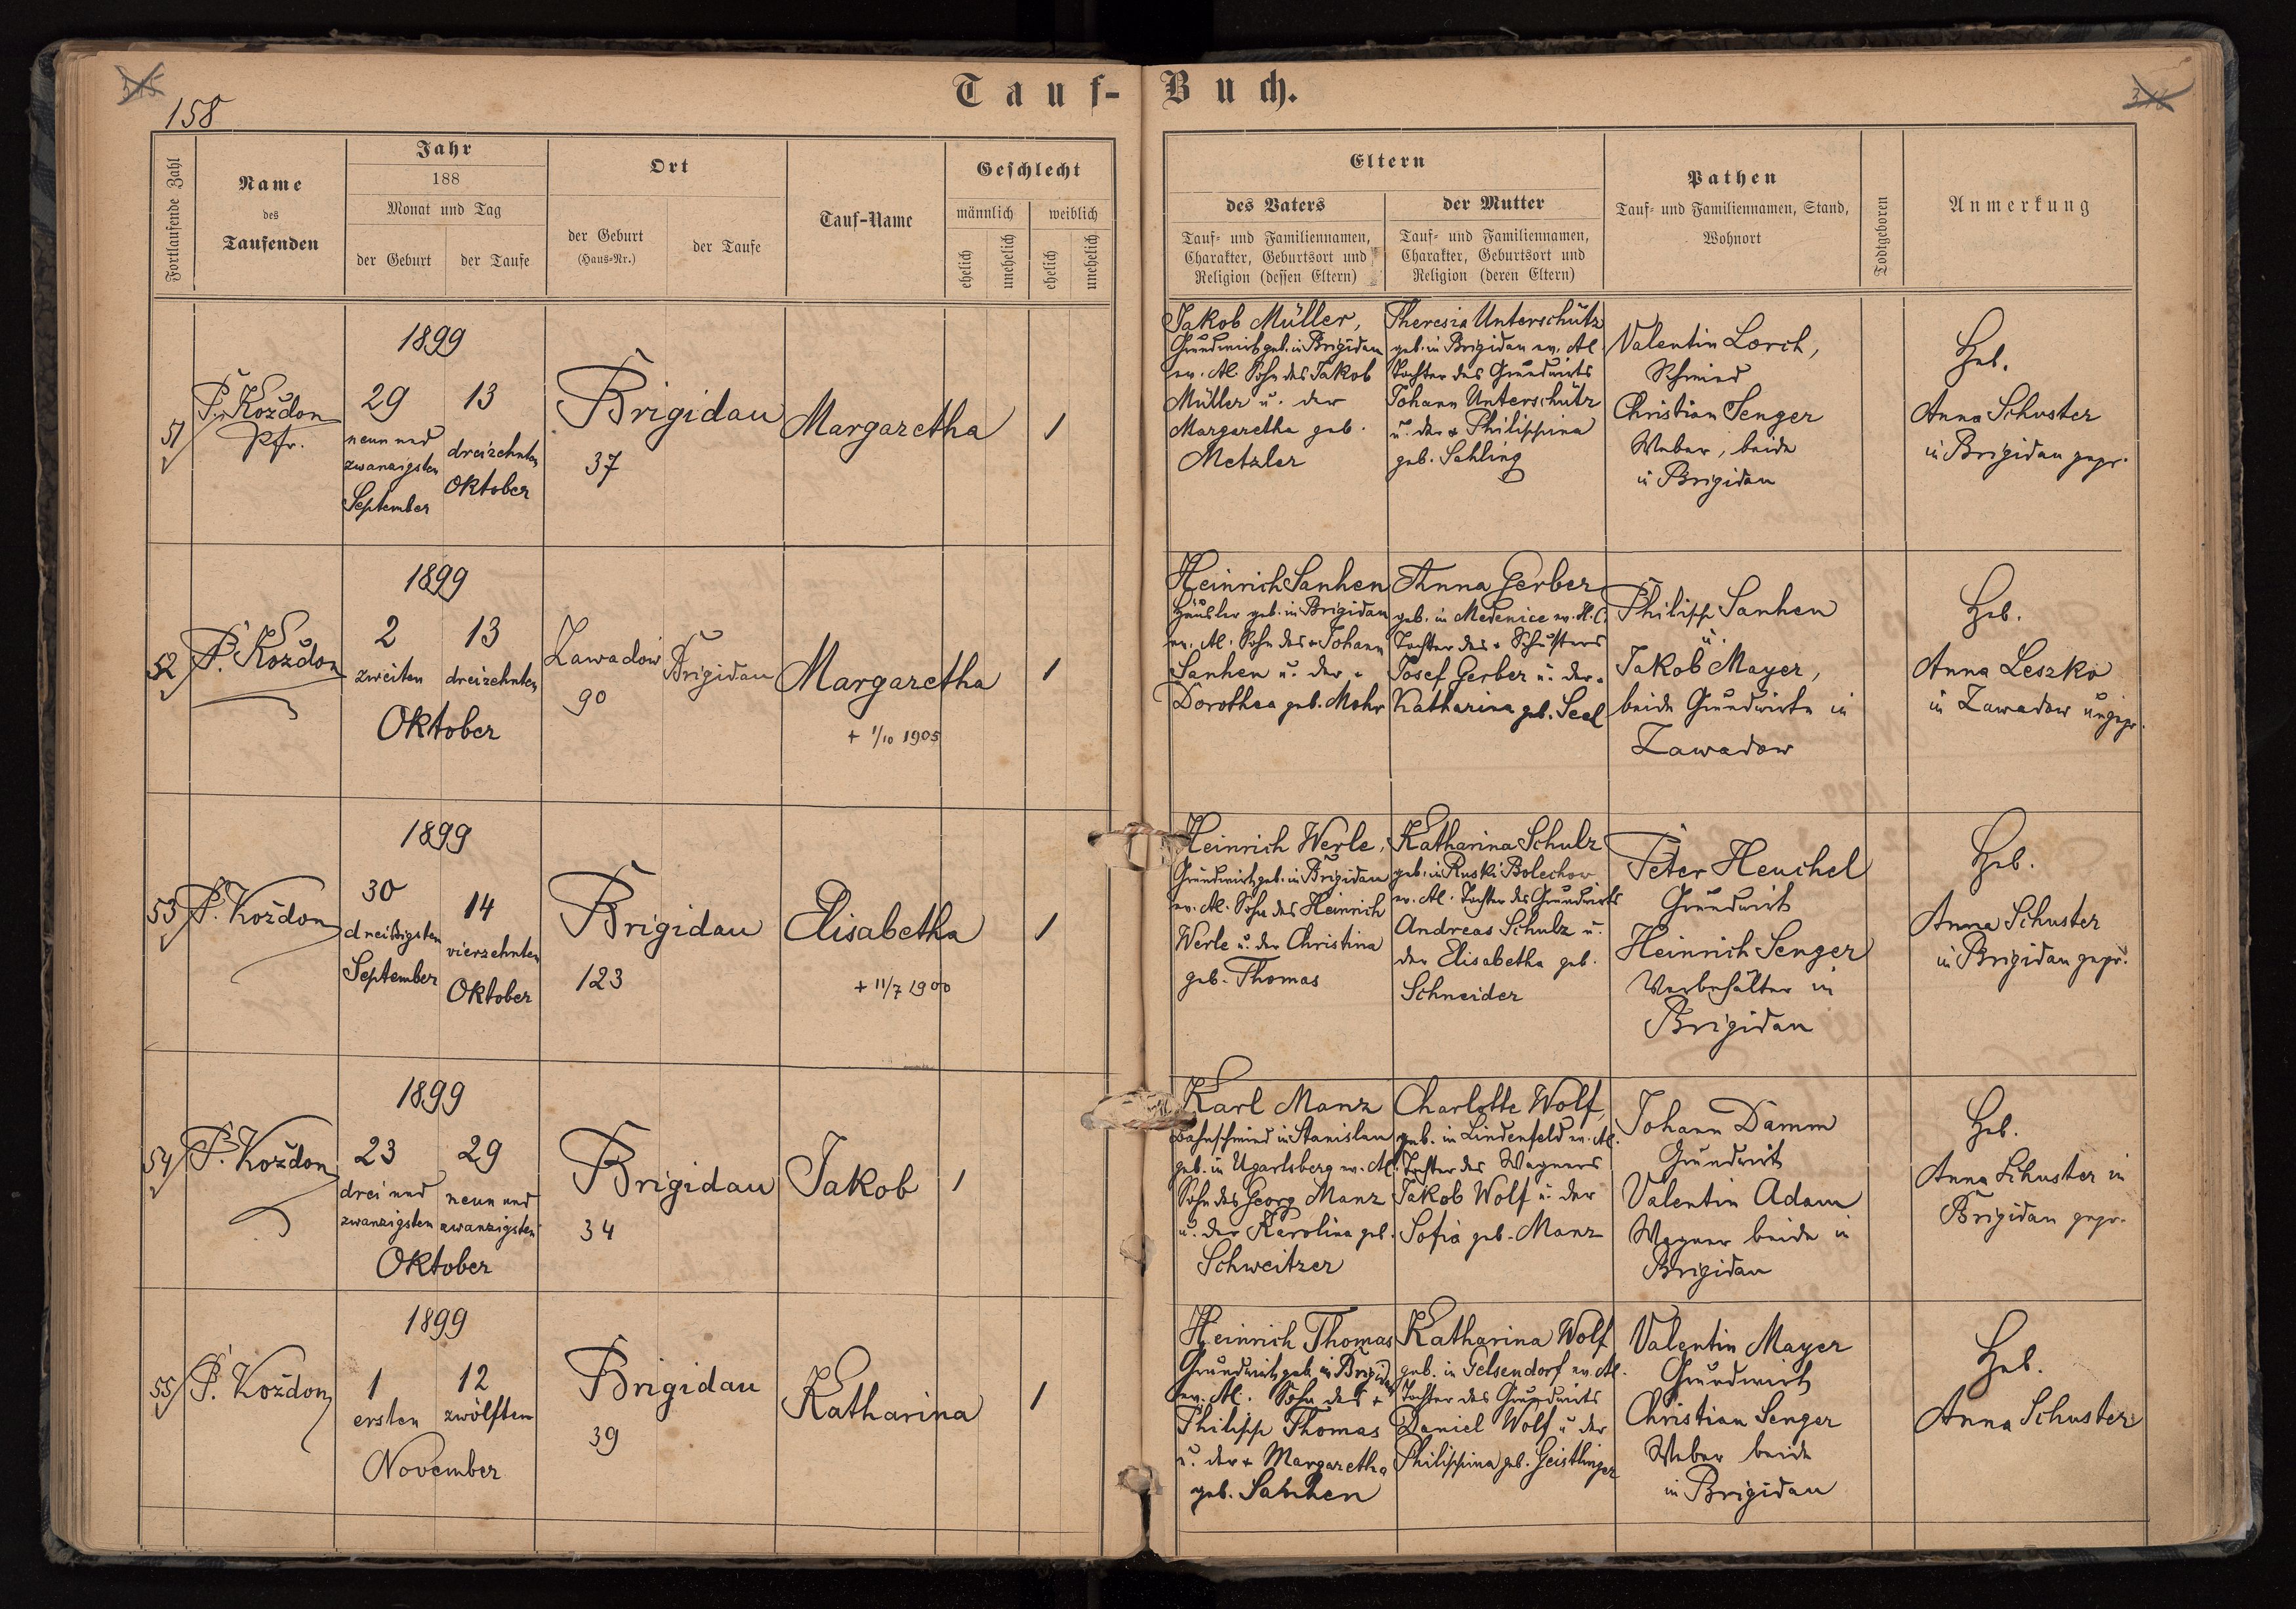 158
Tauf-Buch.
Fortlaufende Zahl
Name
des
Taufenden
Jahr
188
Monat und Tag
der Geburt
der Taufe
Ort
der Geburt
(Haus-Nr.)
der Taufe
Tauf-Name
Geschlecht
männlich
weiblich
ehelich
unehelich
ehelich
unehelich
Eltern
des Vaters
Tauf- und Familiennamen,
Charakter, Geburtsort und
Religion (dessen Eltern)
der Mutter
Tauf- und Familiennamen,
Charakter, Geburtsort und
Religion (deren Eltern)
Pathen
Tauf- und Familiennamen, Stand,
Wohnort
Todtgeboren
Anmerkung
51
P. Kożdon
Pfr.
1899
29
neun und
zwanzigsten
September
13
dreizehnten
Oktober
Brigidau
37
Margaretha
1
Jakob Müller,
Grundwirt geb. in Brigidau
ev. Al. Sohn des Jakob
Müller u. der
Margaretha geb.
Metzler
Theresia Unterschütz
geb. in Brigidau ev. Al.
Tochter des Grundwirts
Johann Unterschütz
u. der + Philippina
geb. Sehling
Valentin Lorch,
Schmied
Christian Senger
Weber, beide
in Brigidau
Heb.
Anna Schuster
in Brigidau gepr.
52
P. Kożdon
1899
2
zweiten
13
dreizehnten
Oktober
Zawadow
90
Brigidau
Margaretha
+ 1/10 1905
1
Heinrich Sanhen
Häusler geb. in Brigidau
ev. Al. Sohn des + Johann
Sanhen u. der +
Dorothea geb. Mohr
Anna Gerber
geb. in Medenice ev. H.C.
Tochter des + Schusters
Josef Gerber u. der +
Katharina geb. Seel
Philipp Sanhen
u.
Jakob Mayer,
beide Grundwirte in
Zawadow
Heb.
Anna Leszko
in Zawadow ungepr.
53
P. Kożdon
1899
30
dreißigsten
September
14
vierzehnten
Oktober
Brigidau
123
Elisabetha
+ 11/7 1900
1
Heinrich Werle,
Grundwirt geb. in Brigidau
ev. Al. Sohn des Heinrich
Werle u. der Christina
geb. Thomas
Katharina Schulz
geb. in Ruski Bolechow
ev. Al. Tochter des Grundwirts
Andreas Schulz u.
der Elisabetha geb.
Schneider
Peter Heuchel
Grundwirt
Heinrich Senger
in
Brigidau
Heb.
Anna Schuster
in Brigidau gepr.
54
P. Kożdon
1899
23
drei und
zwanzigsten
29
neun und
zwanzigsten
Oktober
Brigidau
34
Jakob
1
Karl Manz
Bahnschmied in Stanislau
geb. in Ugartsberg ev. Al.
Sohn des Georg Manz
u. der Karolina geb.
Schweitzer
Charlotte Wolf,
geb. in Lindenfeld ev. Al.
Tochter des Wagners
Jakob Wolf u. der
Sofia geb. Manz
Johann Damm
Grundwirt
Valentin Adam
Wagner beide in
Brigidau
Heb.
Anna Schuster in
Brigidau gepr.
55
P. Kożdon
1899
1
ersten
12
zwölften
November
Brigidau
39
Katharina
1
Heinrich Thomas
Grundwirt geb. in Brigidau
ev. Al. Sohn des +
Philipp Thomas
u. der + Margaretha
geb. Sanhen
Katharina Wolf
geb. in Gelsendorf ev. Al.
Tochter des Grundwirts
Daniel Wolf u. der
Philippina geb. Geistlinger
Valentin Mayer
Grundwirt
Christian Senger
Weber beide
in Brigidau
Heb.
Anna Schuster